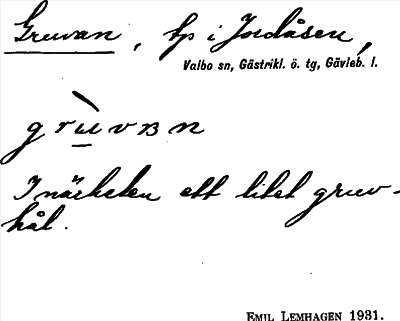 Gruvan, tp i Jordåsen,
Valbo sn, Gästrikl. ö. tg, Gävleb. l.
grùvɜn
I närheten ett litet gruv-
hål.
EMIL LEMHAGEN 1931.